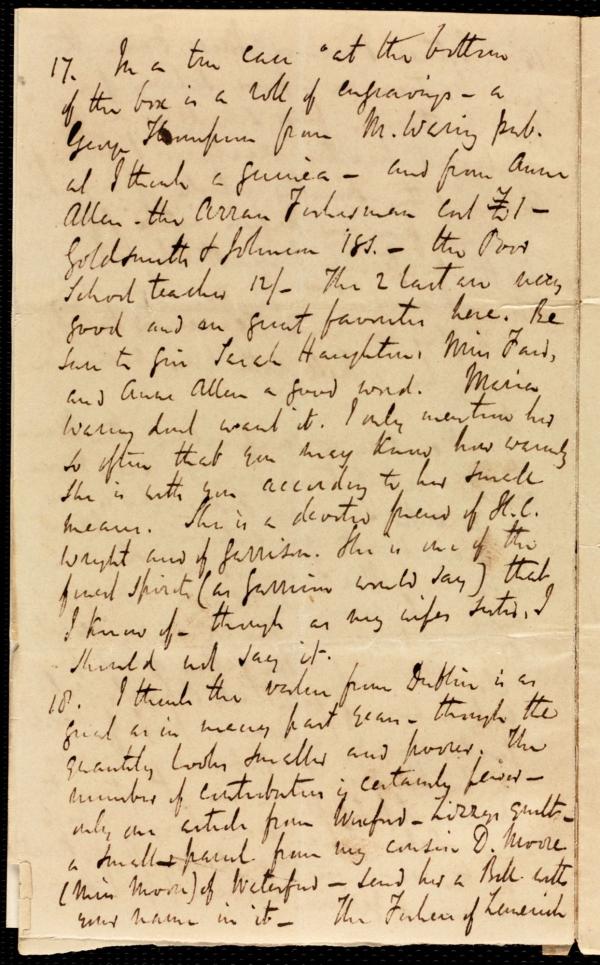 17. In a tin case "at the bottom
of the box is a roll of engravings - a
George Thompson from M. Waring pub.
at I think a guinea - and from Anne
Allen - the Arran Fisherman cost £1 -
Goldsmith & Johnson 18s. - the Poor
School teacher 12/- The 2 last are very
good and are great favorites here. Be
sure to give Sarah Haughton, Miss Ford,
and Anne Allen a good word. Maria
Waring dont want it. I only mention her
so often that you may know how warmly
she is with you according to her small
means. She is a devoted friend of H.C.
Wright and of Garrison. She is one of the
finest spirits (as Garrison would say) that
I know of - though as my wifes sister, I
should not say it.
18. I think the value from Dublin is as
great as in many past years - though the
quantity looks smaller and poorer. The
number of contributors is certainly fewer -
only one article from Wexford - Lizzy's quilt -
a small parcel from my cousin D. Moore
(Miss Moore) of Waterford - send her a Bell with
your name in it - The of Limerick